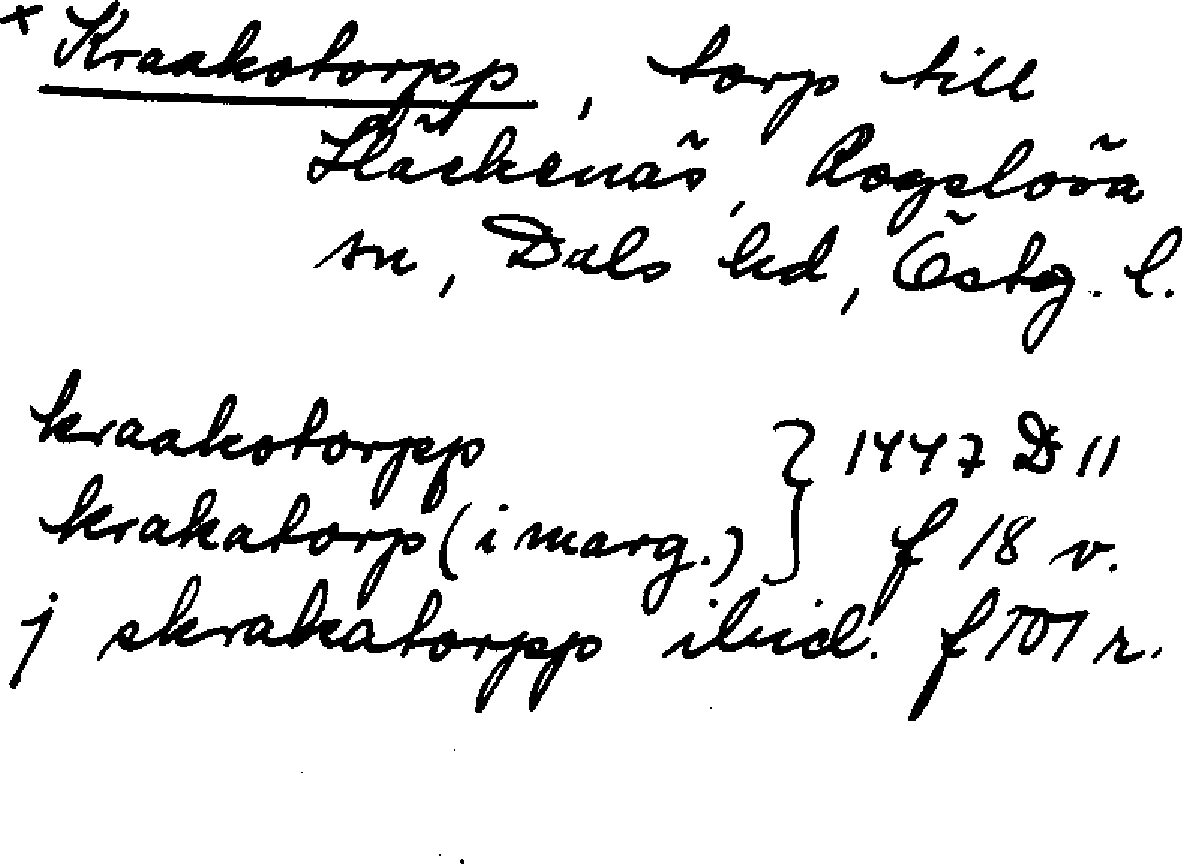 × Kraakotorpp, torp till
Släckenäs, Rogslösa
sn, Dals hd, Östg. l.
kraakotorpp } 1447 D 11
krakatorp (i marg.) } f 18 v.
j skrakatorpp ibid. f 101 r.